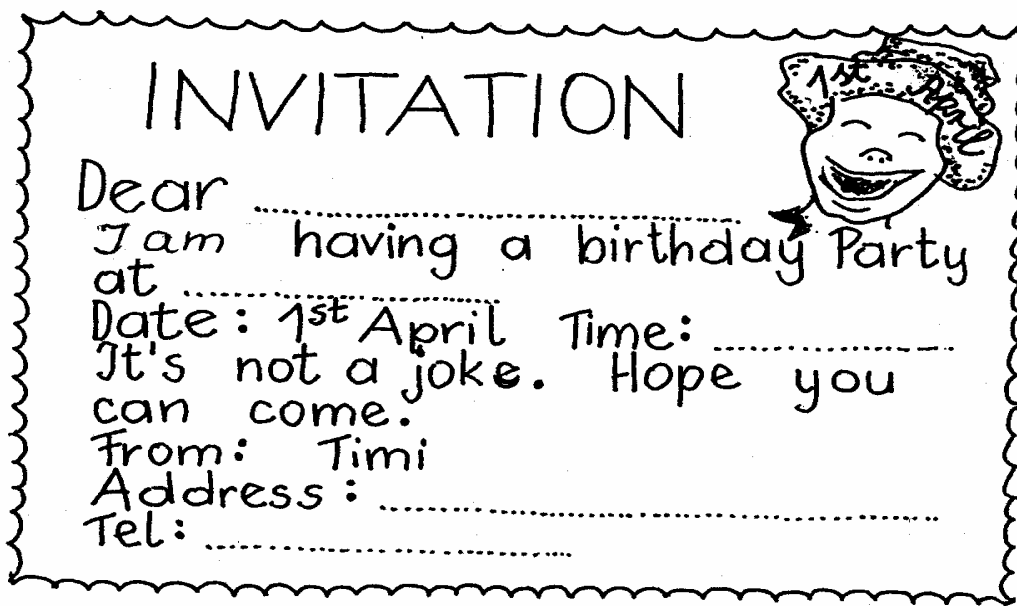 INVITATION
1st April
Dear ..........
I am having a birthday Party
at ..........
Date: 1st April Time: ..........
It's not a joke. Hope you
can come.
From: Timi
Address: ..........
Tel: ..........